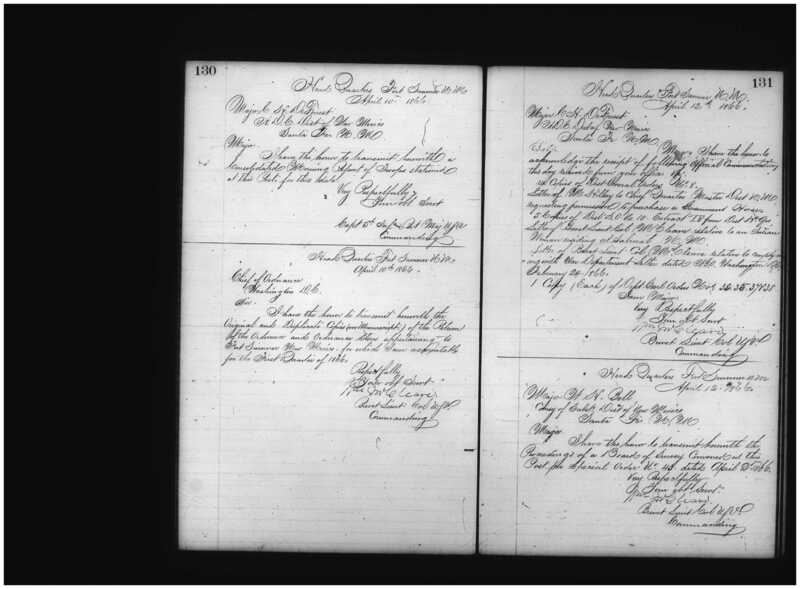 130
Head Quarters Fort Sumner N. M.
April 10th 1866
Major C. H. DeForrest
A. D. C. Dist of New Mexico
Santa Fee N. M.
Major.
I have the honor to transmit herewith a
Consolidated Morning Report of Troops stationed
at this Post for this date
Very Respectfully
Your obt Servt
Capt 5th Inf Bvt Maj U.S.A
Commanding
Head Quarters Fort Sumner N. M.
April 10th 1866.
Chief of Ordnance
Washington D.C.
Sir.
I have the honor to transmit herewith the
Original and Duplicate Copies (in Manuscript) of the Return
of the Ordnance and Ordnance Stores appertaining to
Fort Sumner New Mexico for which I am accountable
for the First Quarter of 1866
Respectfully
Your obt Servt
Wm McCleave
Brevet Lieut Col U.S.V.
Commanding
131
Head Quarters Fort Sumner N. M.
April 12th 1866.
Major C. H. DeForrest
A. D. C. Dist of New Mexico
Santa Fe N. M.
Major I have the honor to
acknowledge the receipt of following Official Communications
this day received from your office
Copies of Dist General Orders No 8.
Letter of to Chief Quarter Master Dist N. M.
requesting permission to purchase Government Horses
5 Copies of Dist Extract 18 from Dist Hd Qrs
Letter of Brevet Lieut Col McCleave relative to an Indian
Woman residing at N. M.
Letter of Brevet Lieut Col McCleave relative to
with War Department letter dated Washington
February 24 1866.
1 Copy (Each) of Dept Genl Orders Nos 34. 35. 37 & 38
I am Major
Very Respectfully
Your obt Servt
Wm McCleave
Brevet Lieut Col U.S.V.
Commanding
Head Quarters Fort Sumner N. M.
April 12 1866
Major N. H. Bell
Chf of Subst Dist of New Mexico
Santa Fe N. M.
Major
I have the honor to transmit herewith the
Proceedings of a Board of Survey Convened at this
Post per Special Order No 43 dated April 1866
Very Respectfully
Your obt Servt
Wm McCleave
Brevet Lieut Col U.S.V.
Commanding